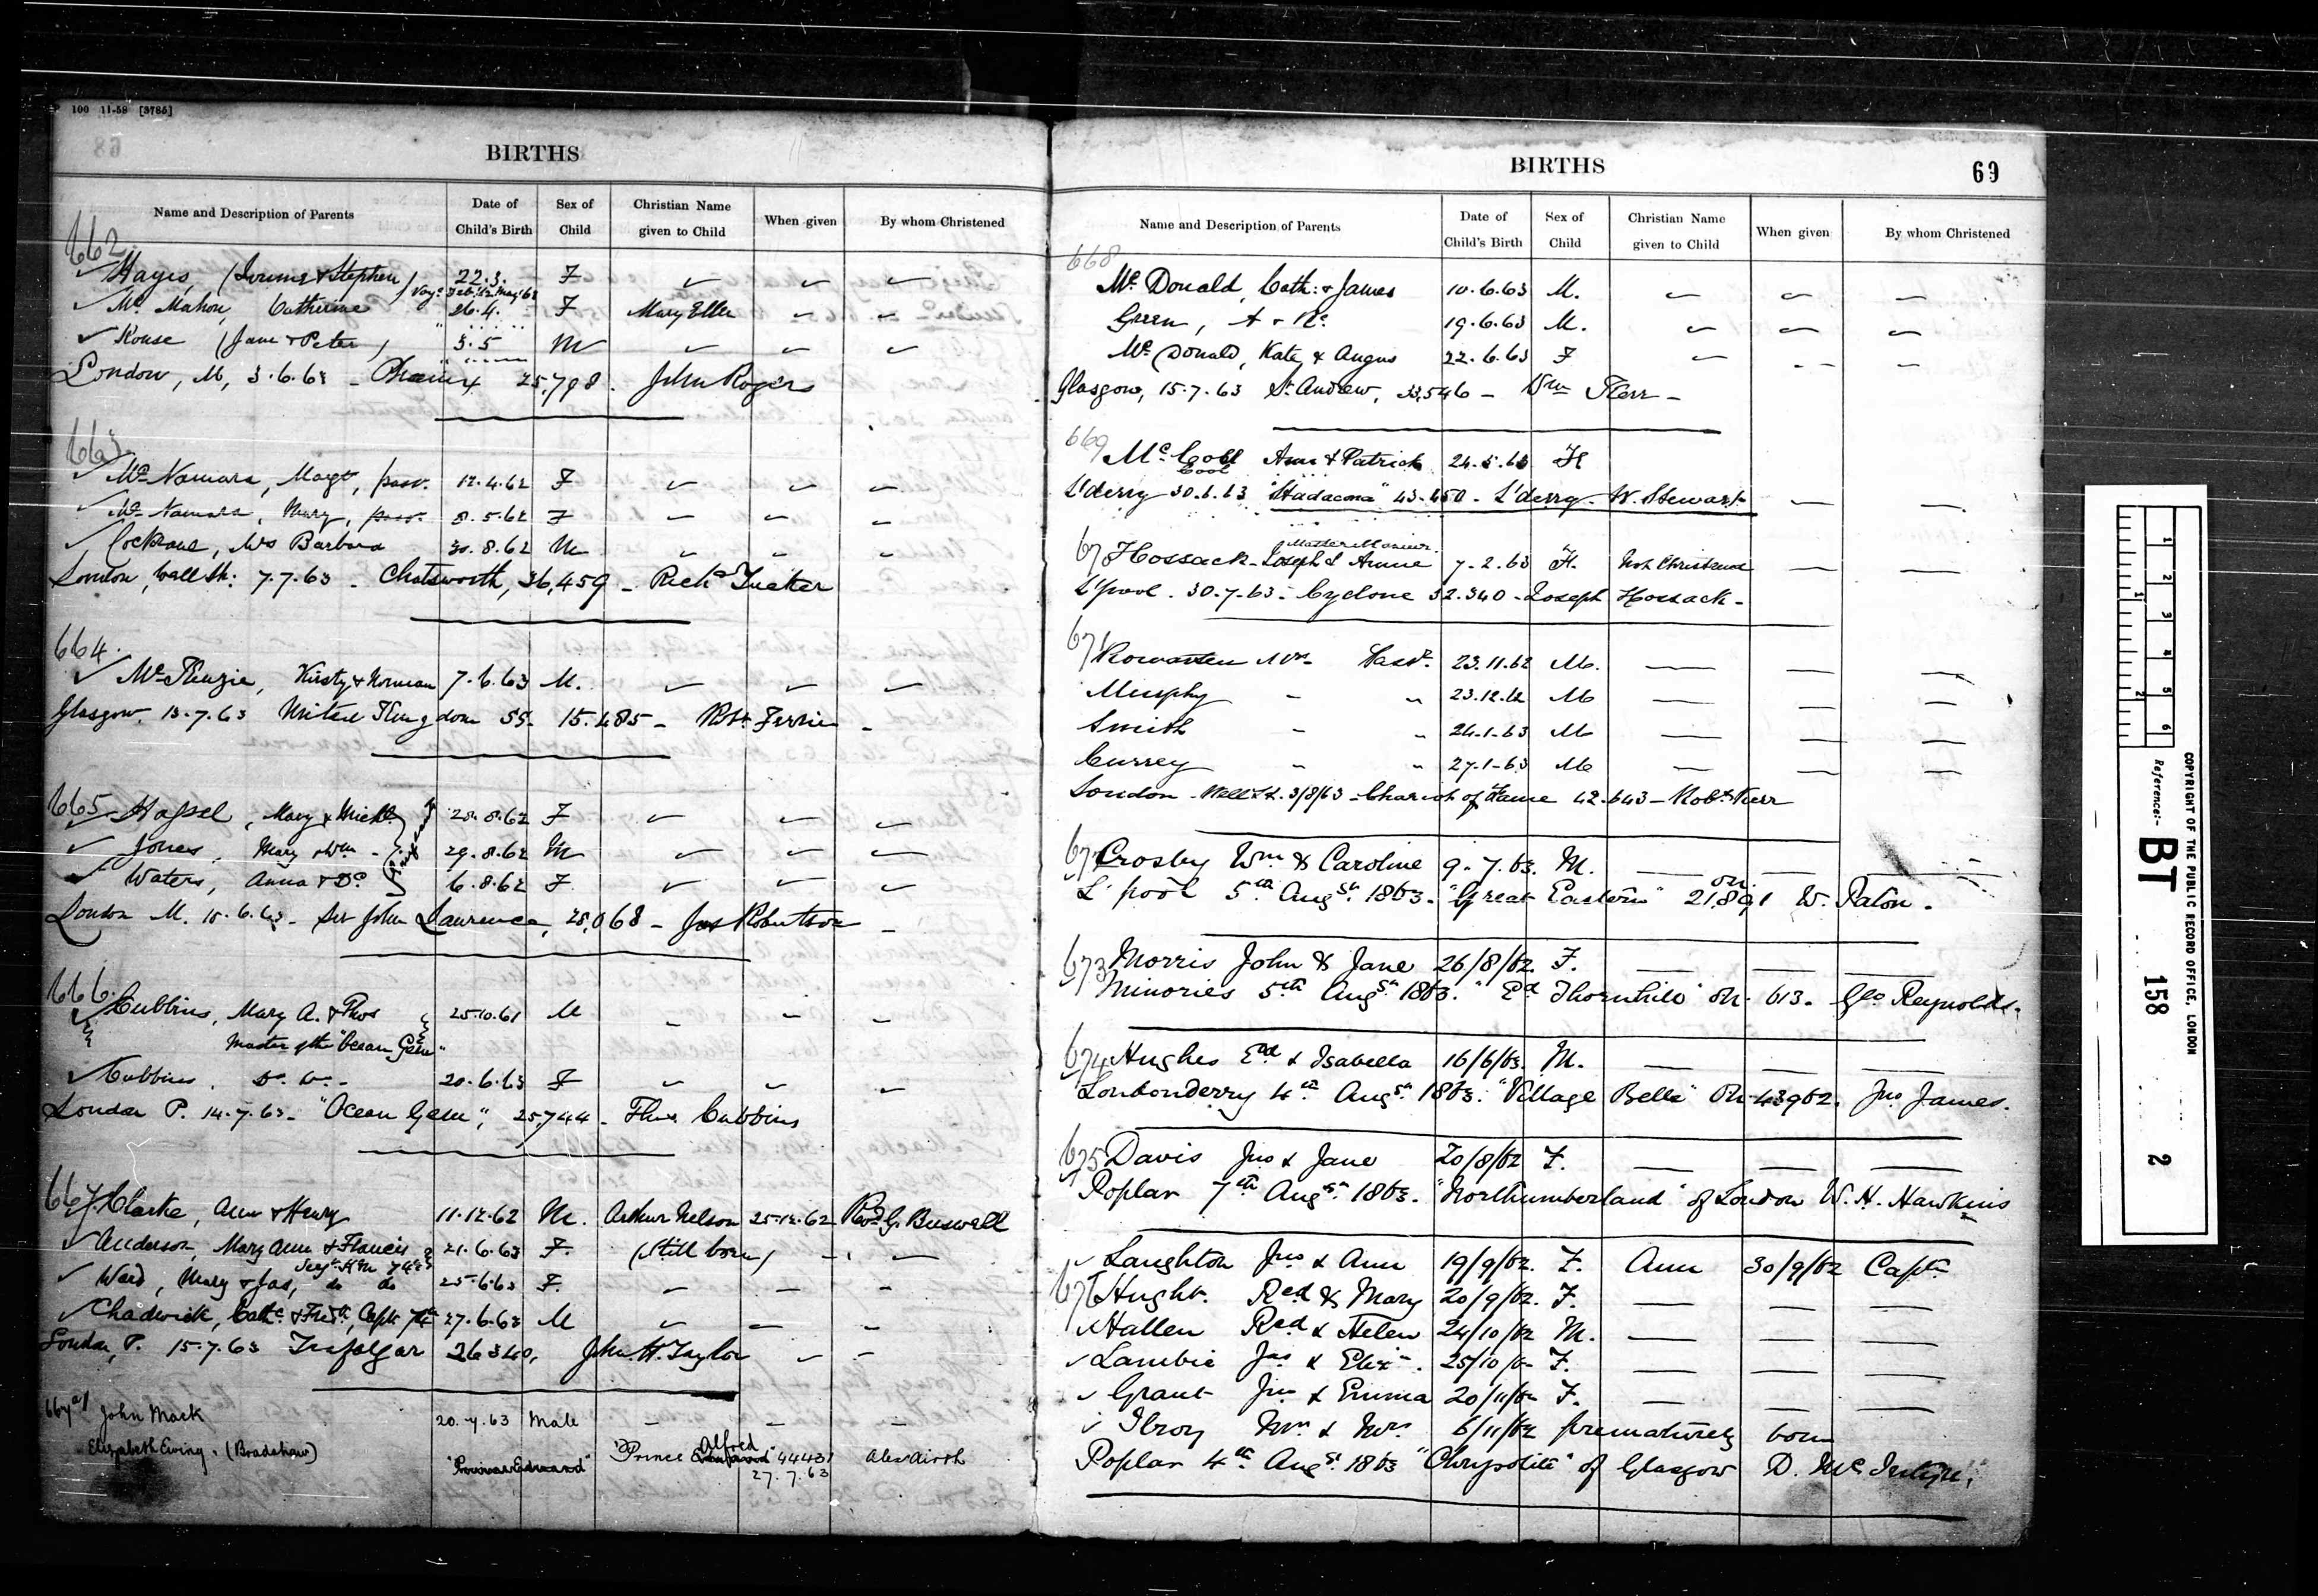 P 100 11-58 [3785]
BIRTHS
Name and Description of Parents Date of Child's Birth Sex of Child Christian Name given to Child When given By whom Christened
662
Hayes, ( & Stephen) 22.3. F
Mc Mahon, Catherine 26.4. F Mary Ellen
Rouse (Jane & Peter) 3.5 M
London, M, 3.6.63 - 25,798. John Rogers
663
Mc Namara, Margt, pass. 12.4.62 F
Mc Namara, Mary, pass. 8.5.62 F
Cockrane, Mrs Barbara 30.8.62 M
London, 7.7.63 - Chatsworth, 36,459 - Richd Tucker
664.
Mc Kenzie, Kirsty & Norman 7.6.63 M.
Glasgow. 13.7.63 United Kingdom SS. 15.485 - Rbt Ferrier -
665
Mary & Michl 28.8.62 F
Jones, Mary & Wm 29.8.62 M
Waters, Anna & Do 6.8.62 F
London M. 15.6.63 - Sir John Laurence, 28,068 - Jas Robertson -
666.
Cubbins, Mary A. & Thos 25.10.61 M
Master of the "Ocean Gem"
Cubbins, Do. Do. - 20.6.63 F
London P. 14.7.63 - "Ocean Gem", 25,744 - Thos Cubbins
667.
Clarke, Ann & Henry 11.12.62 M. Arthur Nelson 25.12.62 Revd G. Buswell
Anderson, Mary Ann & Francis 21.6.63 F. (Still born)
Ward, Mary & Jas, do do 25.6.63 F.
Chadwick, Cathe & Fredk, Capt 27.6.63 M
London, P. 15.7.63 Trafalgar 26340, John H. Taylor
667a/
John Mack 20.7.63 Male
Elizabeth Ewing. (Bradshaw) Prince Alfred 44431 Alex Airth
27.7.63
BIRTHS
69
Name and Description of Parents Date of Child's Birth Sex of Child Christian Name given to Child When given By whom Christened
668
Mc Donald, Cath: & James 10.6.63 M.
Green, 19.6.63 M.
Mc Donald, Kate & Angus 22.6.63 F
Glasgow, 15.7.63 St Andrew, 33,546 - Wm Kerr -
669
Mc Ann & Patrick 24.5.63 F
L'derry 30.6.63 "Stadacona" 43.450 - L'derry - W. Stewart
670
Hossack - Joseph & Annie 7.2.63 F. Not Christened
L'pool. 30.7.63 - Cyclone 32.340 - Joseph Hossack -
671
Mrs Passr. 23.11.62 M.
Murphy - " 23.12.62 M
Smith - " 24-1-63 M
Currey - " 27-1-63 M
London - 3/8/63 - Chariot of Fame 42.643 - Robt Kerr
672
Crosby Wm & Caroline 9.7.63. M.
L'pool 5th Augst 1863. "Great Eastern" on. 21,891 W. Paton.
673
Morris John & Jane 26/8/62. F.
Minories 5th Augst 1863. "Ed Thornhill" on. 613. Geo Reynolds.
674
Hughes Ed & Isabella 16/6/63. M.
Londonderry 4th Augst 1863. "Village Belle" on 43962. Jno James.
675
Davis Jno & Jane 20/8/62 F.
Poplar 7th Augst 1863. "Northumberland" of London W. H. Hawkins
676
Laughton Jno & Ann 19/9/62. F. Ann 30/9/62 Captn
Hught. Red & Mary 20/9/62. F.
Hallen Red & Helen 24/10/62 M.
Lambie Jas & Eliz. 25/10/62 F.
Grant Jno & Emma 20/11/62 F.
Ilroy Mr & Mrs 6/11/62 prematurely born
Poplar 4th Augst 1863 "Chrysolite" of Glasgow D. Mc Intyre.
COPYRIGHT OF THE PUBLIC RECORD OFFICE, LONDON
Reference:-
BT 158 2
1 2 3 4 5 6
1 2